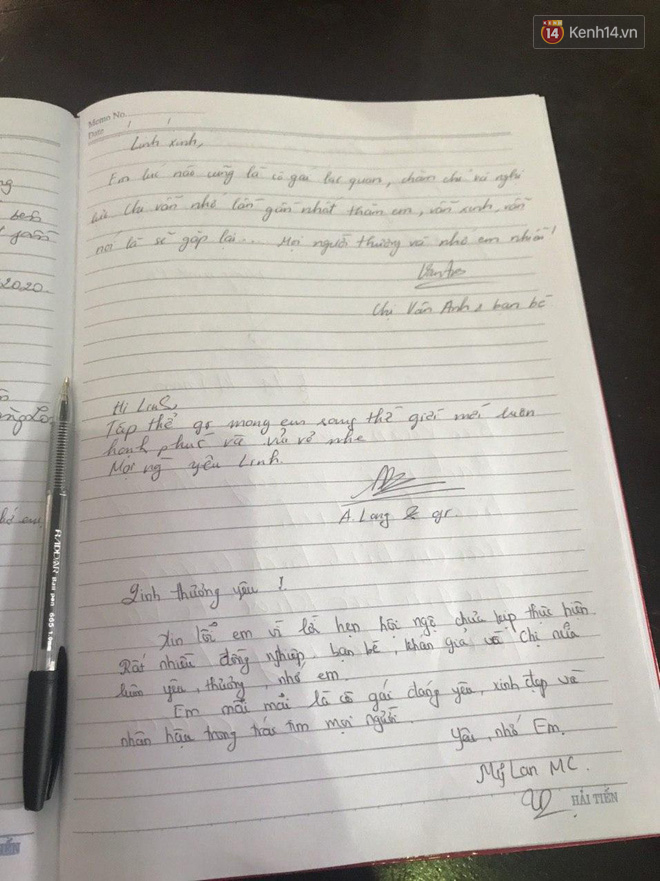 14 Kenh14.vn
Memo No.
Date / /
Linh xinh,
Em lúc nào cũng là cô gái lạc quan, chăm chỉ và nghị
lực. Chị vẫn nhớ lần gần nhất thăm em, vẫn xinh, vẫn
nói là sẽ gặp lại... Mọi người thương và nhớ em nhiều!
Chị Vân Anh & bạn bè
Hi Linh,
Tập thể gr mong em sang thế giới mới luôn
hạnh phúc và vui vẻ nhé
Mọi ng yêu Linh.
A. Long & gr.
Linh thương yêu !
Xin lỗi em vì lời hẹn hội ngộ chưa kịp thực hiện.
Rất nhiều đồng nghiệp, bạn bè, khán giả và chị nữa
luôn yêu, thương, nhớ em.
Em mãi mãi là cô gái đáng yêu, xinh đẹp và
nhân hậu trong trái tim mọi người.
Yêu, nhớ Em.
Mỹ Lan MC.
HẢI TIẾN
2020